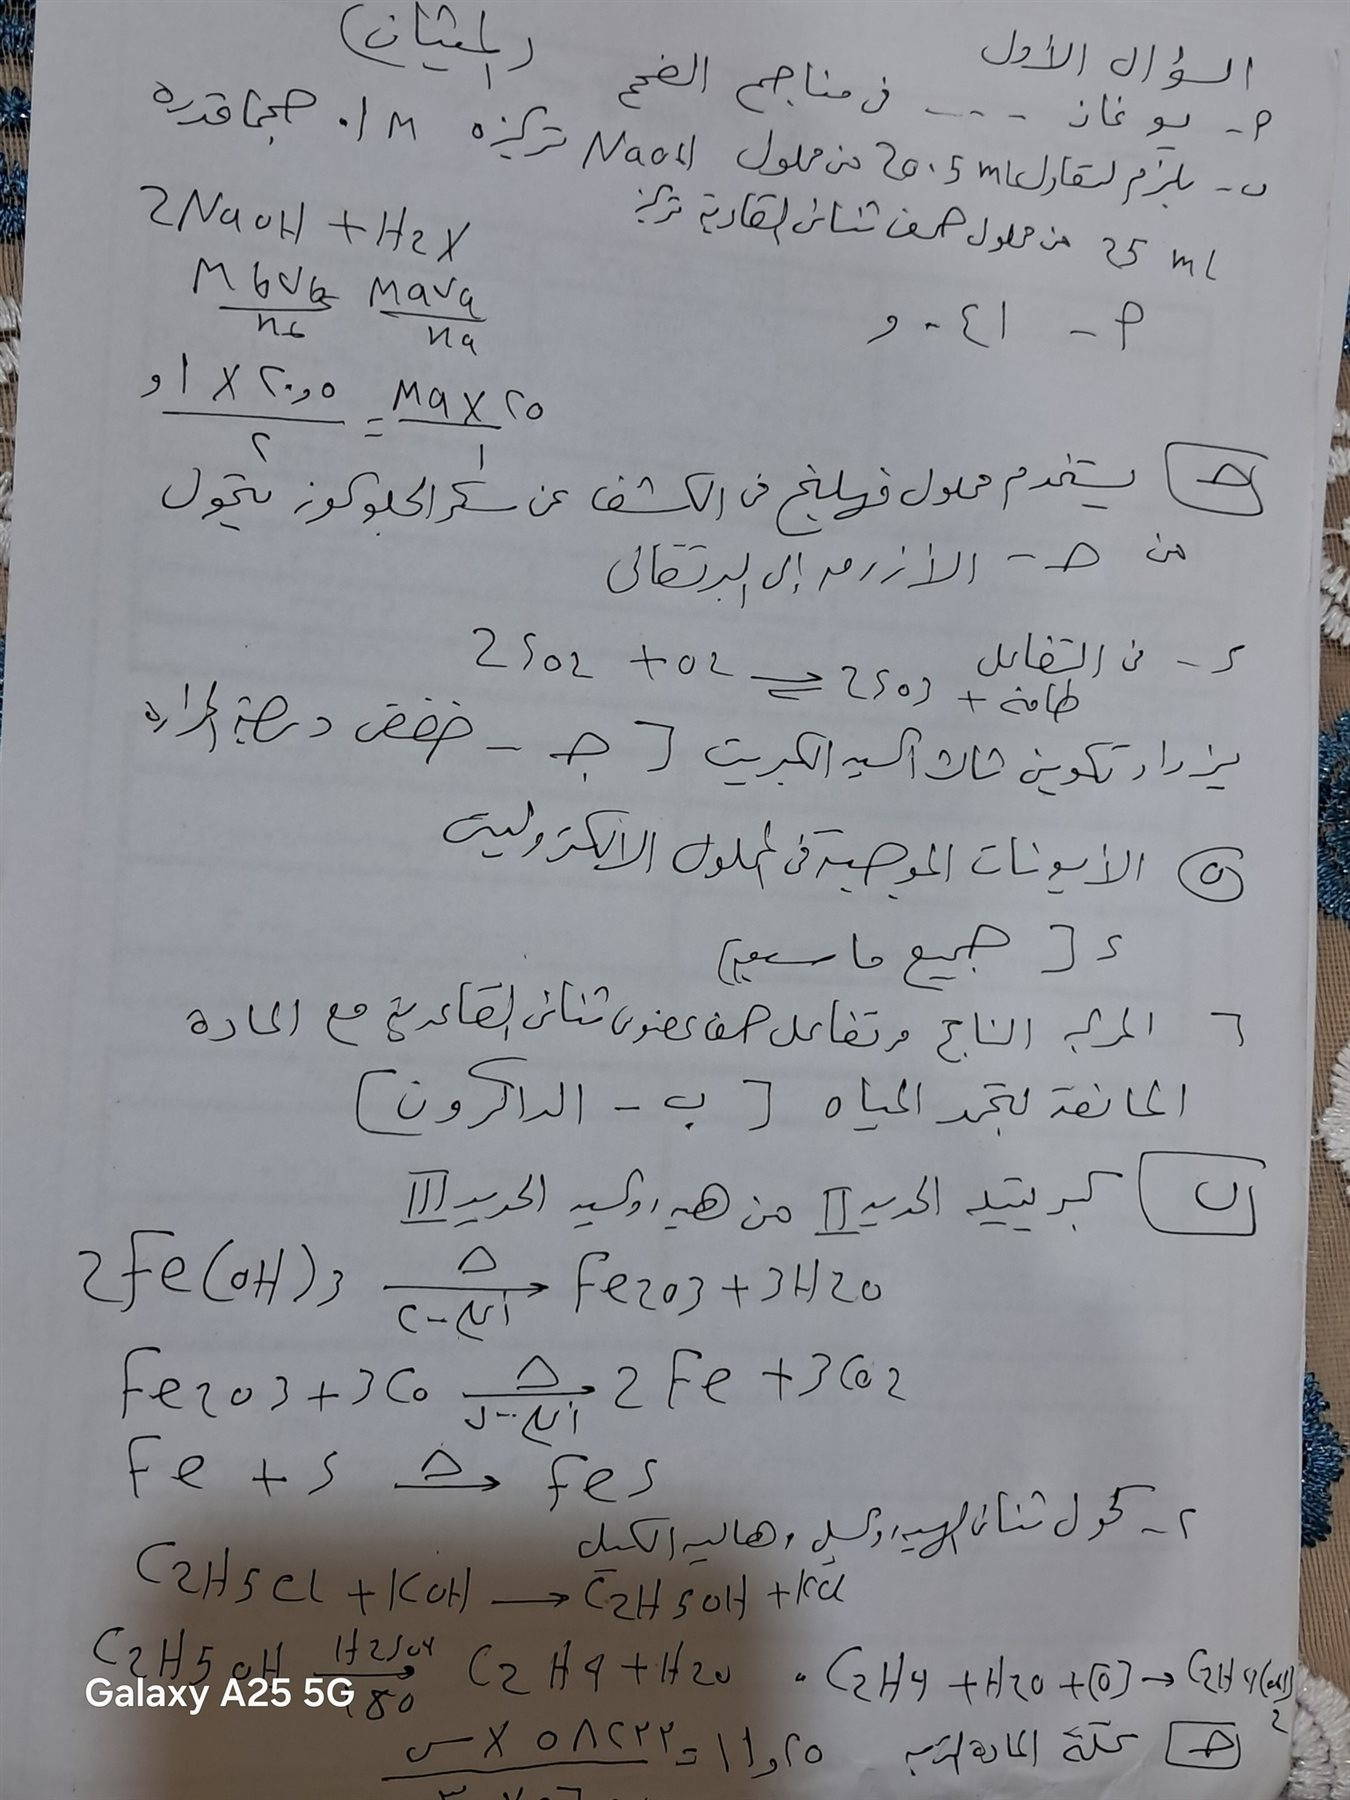 السؤال الأول
(الميثان)
٢- يو غاز ---- فى مناجم الفحم
ب- يلزم لتعادل 20.5 mL من محلول NaOH تركيزه 0.1 M حجما قدره
25 mL من محلول حمض ثنائى القاعدية تركيز
2NaOH + H2X
MbVb/nb = MaVa/na
٢- ٠٤١ و
و١ X ٢٠,٥ / ٢ = Ma X ٢٥ / ١
ج يستخدم محلول فهلينج فى الكشف عن سكر الجلوكوز يتحول
من ج - الأزرق إلى البرتقالى
د- فى التفاعل 2SO2 + O2 ⇌ 2SO3 + طاقة
يزداد تكوين ثالث أكسيد الكبريت [ ج - خفض درجة الحراره
٥ الأيونات الموجبة فى المحلول الألكتروليتى
د [ جميع ما سبق]
٦ المركب الناتج من تفاعل حمض عضوى ثنائى القاعدية مع المادة
المانعة لتجمد المياه [ ب - الداكرون ]
ب كبريتيد الحديد II من هيدروكسيد الحديد III
2Fe(OH)3 —Δ→ Fe2O3 + 3H2O
أعلى ٢٠٠
Fe2O3 + 3CO —Δ→ 2Fe + 3CO2
Fe + S —Δ→ FeS
٢- كحول ثنائى الهيدروكسيل من هاليد الكيل
C2H5Cl + KOH → C2H5OH + KCl
C2H5OH —H2SO4 180→ C2H4 + H2O . C2H4 + H2O + [O] → C2H4(OH)2
ج كتلة المادة
Galaxy A25 5G